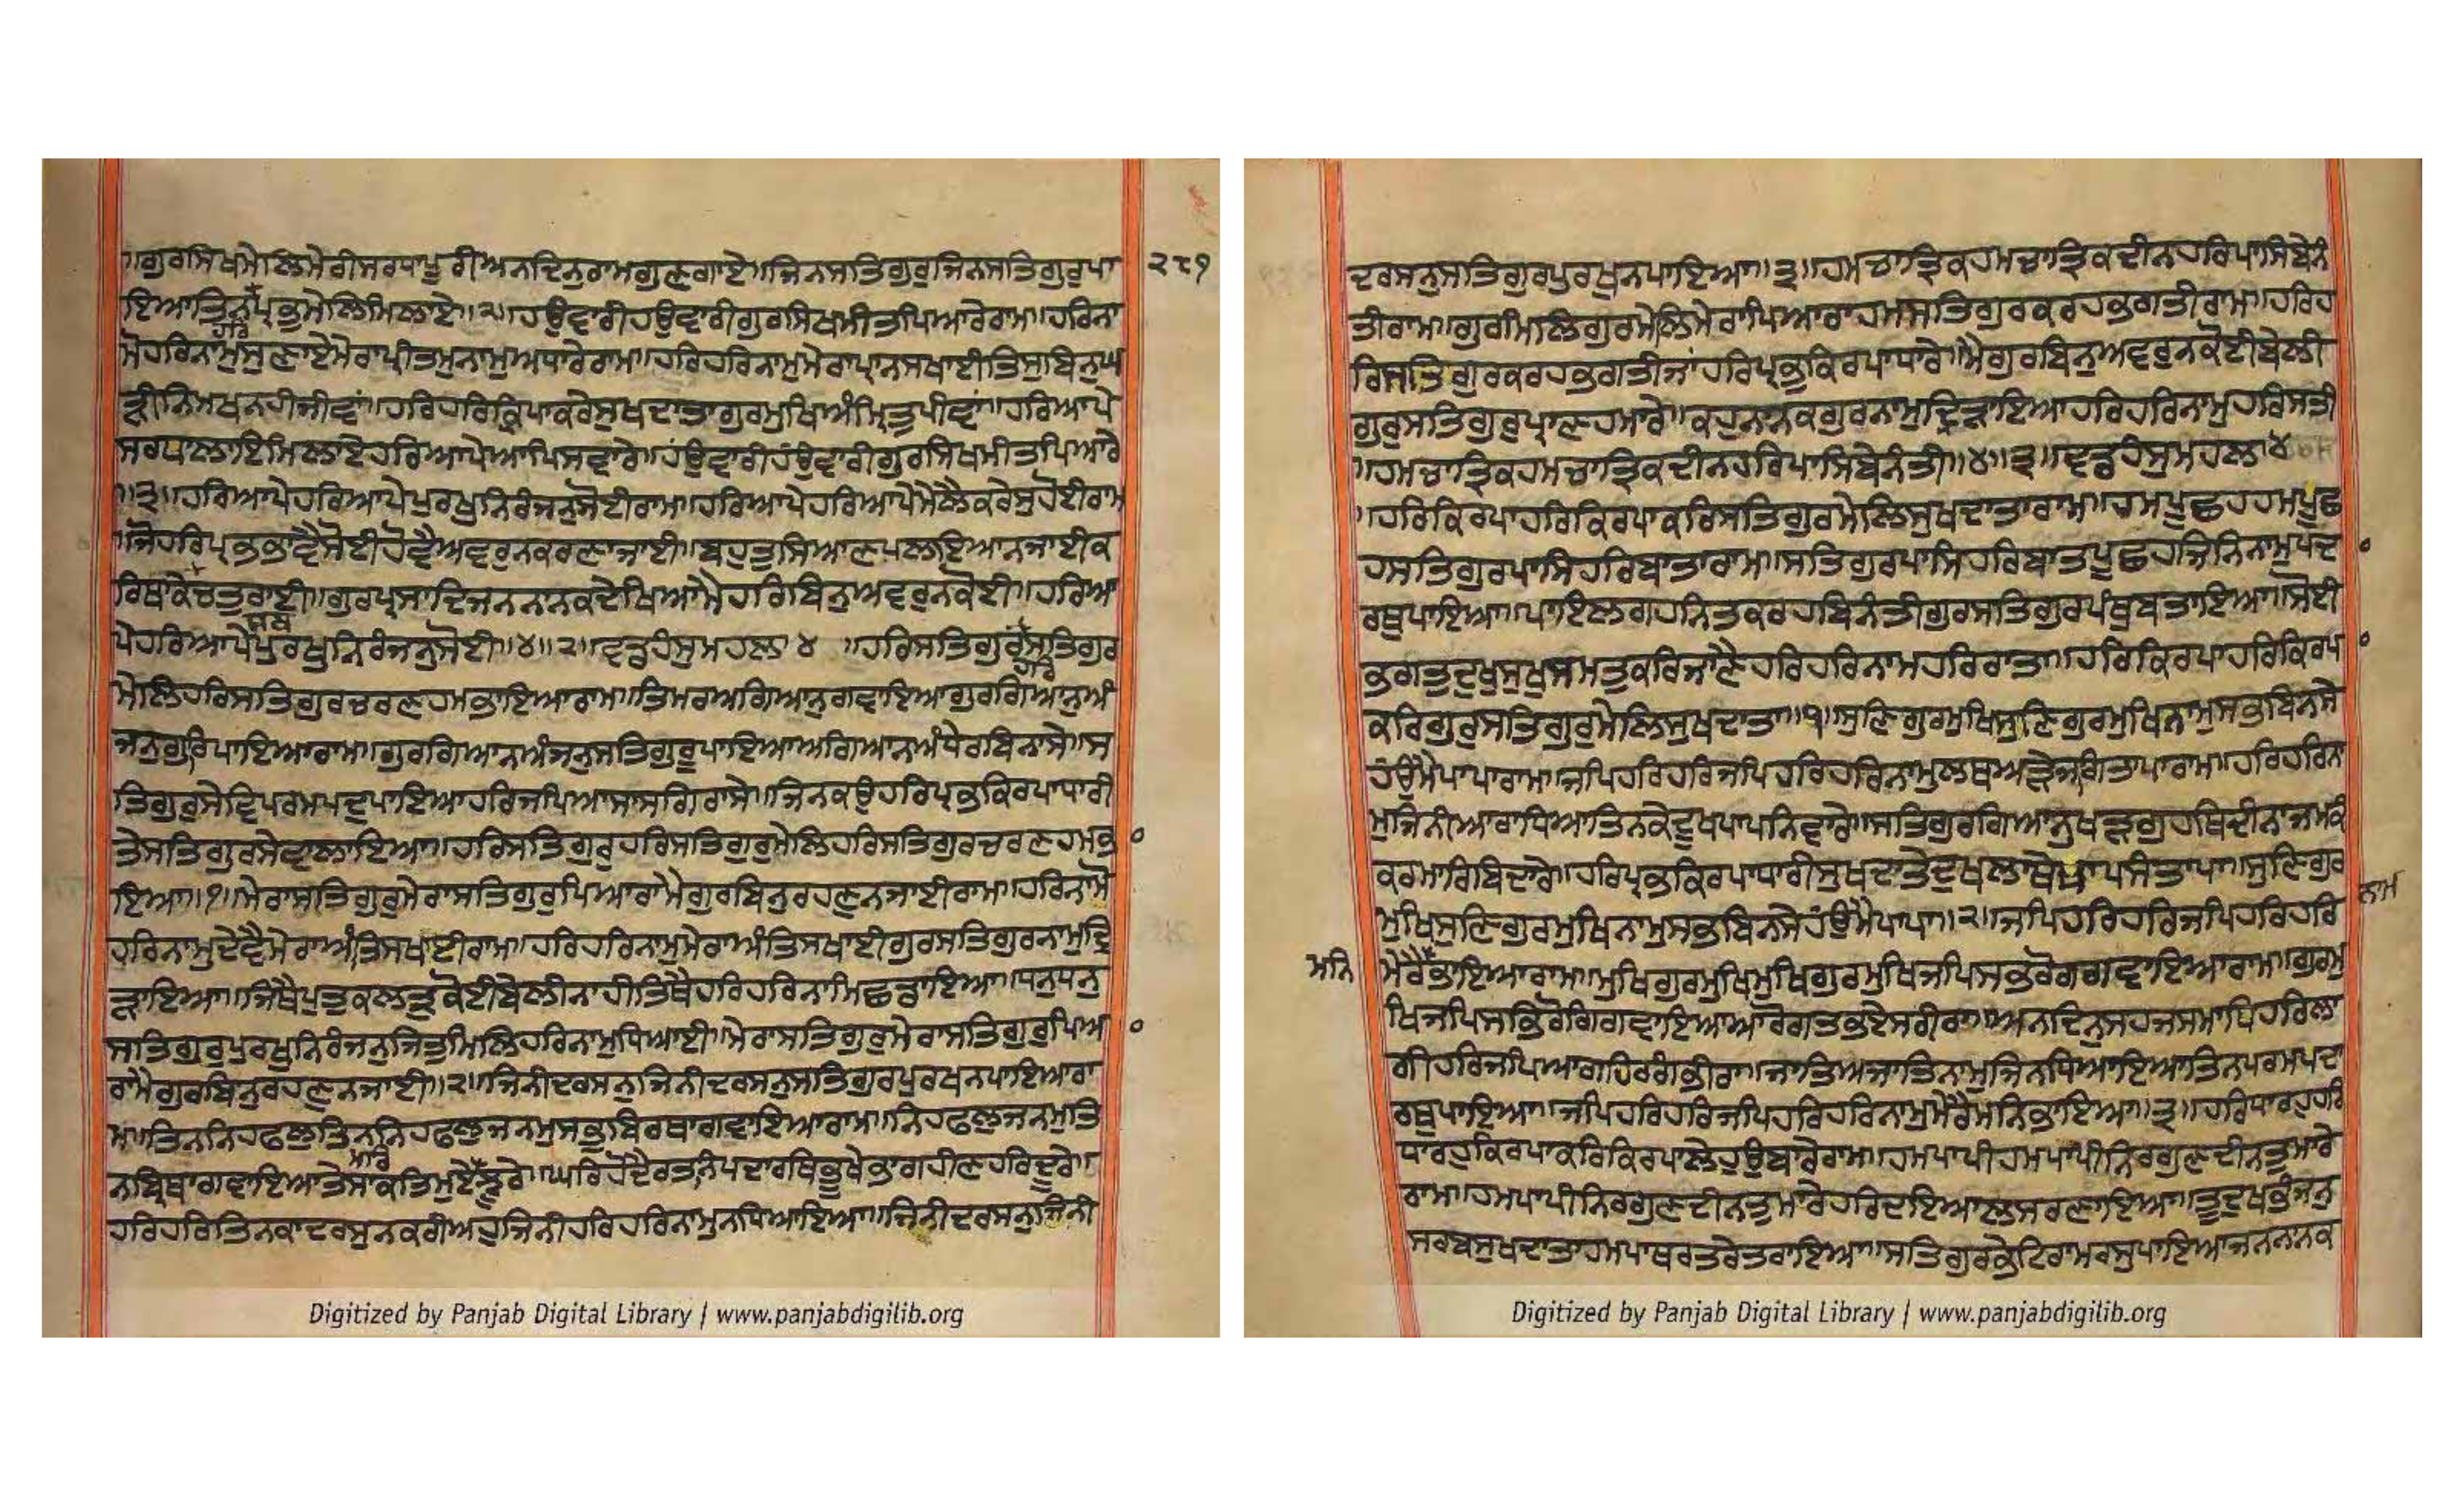 ॥ਗੁਰਸਿਖਮੇਲਿਮੇਰੀਸਰਧਾਪੂਰੀਅਨਦਿਨੁਰਾਮਗੁਣਗਾਏ॥ਜਿਨਸਤਿਗੁਰੁਜਿਨਸਤਿਗੁਰੁਪਾ
੨੮੧
ਇਆਤਿਨਪ੍ਰਭੁਮੇਲਿਮਿਲਾਏ॥੨॥ਹਉਵਾਰੀਹਉਵਾਰੀਗੁਰਸਿਖਮੀਤਪਿਆਰੇਰਾਮ॥ਹਰਿਨਾ
ਹਰਿ
ਮੋਹਰਿਨਾਮੁਸੁਣਾਏਮੇਰਾਪ੍ਰੀਤਮੁਨਾਮੁਅਧਾਰੇਰਾਮ॥ਹਰਿਹਰਿਨਾਮੁਮੇਰਾਪ੍ਰਾਨਸਖਾਈਤਿਸੁਬਿਨੁਘ
ੜੀਨਿਮਖਨਹੀਜੀਵਾਂ॥ਹਰਿਹਰਿਕ੍ਰਿਪਾਕਰੇਸੁਖਦਾਤਾਗੁਰਮੁਖਿਅੰਮ੍ਰਿਤੁਪੀਵਾਂ॥ਹਰਿਆਪੇ
ਸਰਧਾਲਾਇਮਿਲਾਏਹਰਿਆਪੇਆਪਿਸਵਾਰੇ॥ਹੰਉਵਾਰੀਹੰਉਵਾਰੀਗੁਰਸਿਖਮੀਤਪਿਆਰੇ
॥੩॥ਹਰਿਆਪੇਹਰਿਆਪੇਪੁਰਖੁਨਿਰੰਜਨੁਸੋਈਰਾਮ॥ਹਰਿਆਪੇਹਰਿਆਪੇਮੇਲੈਕਰੇਸੁਹੋਈਰਾਮ
॥ਜੋਹਰਿਪ੍ਰਭਭਾਵੈਸੋਈਹੋਵੈਅਵਰੁਨਕਰਣਾਜਾਈ॥ਬਹੁਤੁਸਿਆਣਪਲਇਆਨਜਾਈਕ
ਰਿਥਾਕੇਚਤੁਰਾਈ॥ਗੁਰਪ੍ਰਸਾਦਿਜਨਨਾਨਕਦੇਖਿਆਮੈਹਰਿਬਿਨੁਅਵਰੁਨਕੋਈ॥ਹਰਿਆ
ਪੇਹਰਿਆਪੇਪੁਰਖੁਨਿਰੰਜਨੁਸੋਈ॥੪॥੨॥ਵਡਹੰਸੁਮਹਲਾ ੪ ॥ਹਰਿਸਤਿਗੁਰਸਤਿਗੁਰ
ਹਰਿ
ਮੇਲਿਹਰਿਸਤਿਗੁਰਚਰਣਹਮਭਾਇਆਰਾਮ॥ਤਿਮਰਅਗਿਆਨੁਗਵਾਇਆਗੁਰਗਿਆਨੁਅੰ
ਜਨੁਗੁਰਿਪਾਇਆਰਾਮ॥ਗੁਰਗਿਆਨਅੰਜਨੁਸਤਿਗੁਰੂਪਾਇਆਅਗਿਆਨਅੰਧੇਰਬਿਨਾਸੇ॥ਸ
ਤਿਗੁਰਸੇਵਿਪਰਮਪਦੁਪਾਇਆਹਰਿਜਪਿਆਸਾਸਗਿਰਾਸੇ॥ਜਿਨਕਉਹਰਿਪ੍ਰਭੁਕਿਰਪਾਧਾਰੀ
ਤੇਸਤਿਗੁਰਸੇਵਾਲਾਇਆ॥ਹਰਿਸਤਿਗੁਰੁਹਰਿਸਤਿਗੁਰੁਮੇਲਿਹਰਿਸਤਿਗੁਰਚਰਣਹਮਭ
ਇਆ॥੧॥ਮੇਰਾਸਤਿਗੁਰੁਮੇਰਾਸਤਿਗੁਰੁਪਿਆਰਾਮੈਗੁਰਬਿਨੁਰਹਣੁਨਜਾਈਰਾਮ॥ਹਰਿਨਾਮੋ
ਹਰਿਨਾਮੁਦੇਵੈਮੇਰਾਅੰਤਿਸਖਾਈਰਾਮ॥ਹਰਿਹਰਿਨਾਮੁਮੇਰਾਅੰਤਿਸਖਾਈਗੁਰਸਤਿਗੁਰਨਾਮੁਦ੍ਰਿ
ੜਾਇਆ॥ਜਿਥੈਪੁਤੁਕਲਤ੍ਰੁਕੋਈਬੇਲੀਨਾਹੀਤਿਥੈਹਰਿਹਰਿਨਾਮਿਛਡਾਇਆ॥ਧਨੁਧਨੁ
ਸਤਿਗੁਰਪੁਰਖੁਨਿਰੰਜਨੁਜਿਤੁਮਿਲਿਹਰਿਨਾਮੁਧਿਆਈ॥ਮੇਰਾਸਤਿਗੁਰੁਮੇਰਾਸਤਿਗੁਰੁਪਿਆ
ਰਾਮੈਗੁਰਬਿਨੁਰਹਣੁਨਜਾਈ॥੨॥ਜਿਨੀਦਰਸਨੁਜਿਨੀਦਰਸਨੁਸਤਿਗੁਰਪੁਰਖਨਪਾਇਆਰਾ
ਮ॥ਤਿਨਨਿਹਫਲੁਤਿਨਨਿਹਫਲੁਜਨਮੁਸਭੁਬਿਰਥਾਗਵਾਇਆਰਾਮ॥ਨਿਹਫਲੁਜਨਮੁਤਿ
ਮਰਿ
ਨਬ੍ਰਿਥਾਗਵਾਇਆਤੇਸਾਕਤਿਮੁਏਝੂਰੇ॥ਘਰਿਹੋਦੈਰਤਨਿਪਦਾਰਥਿਭੂਖੇਭਾਗਹੀਣਹਰਿਦੂਰੇ॥
ਹਰਿਹਰਿਤਿਨਕਾਦਰਸੁਨਕਰੀਅਹੁਜਿਨੀਹਰਿਹਰਿਨਾਮੁਨਧਿਆਇਆ॥ਜਿਨੀਦਰਸਨੁਜਿਨੀ
Digitized by Panjab Digital Library | www.panjabdigilib.org
ਦਰਸਨੁਸਤਿਗੁਰਪੁਰਖੁਨਪਾਇਆ॥੩॥ਹਮਚਾਤ੍ਰਿਕਹਮਚਾਤ੍ਰਿਕਦੀਨਹਰਿਪਾਸਿਬੇਨੰ
ਤੀਰਾਮ॥ਗੁਰਮਿਲਿਗੁਰਮੇਲਿਮੇਰਾਪਿਆਰਾਹਮਸਤਿਗੁਰਕਰਹਭਗਤੀਰਾਮ॥ਹਰਿਹ
ਰਿਸਤਿਗੁਰਕਰਹਭਗਤੀਜਾਂਹਰਿਪ੍ਰਭੁਕਿਰਪਾਧਾਰੇ॥ਮੈਗੁਰਬਿਨੁਅਵਰੁਨਕੋਈਬੇਲੀ
ਗੁਰੁਸਤਿਗੁਰੁਪ੍ਰਾਣਹਮਾਰੇ॥ਕਹੁਨਾਨਕਗੁਰਨਾਮੁਦ੍ਰਿੜਾਇਆਹਰਿਹਰਿਨਾਮੁਹਰਿਸਤੀ
॥ਹਮਚਾਤ੍ਰਿਕਹਮਚਾਤ੍ਰਿਕਦੀਨਹਰਿਪਾਸਿਬੇਨੰਤੀ॥੪॥੩॥ਵਡਹੰਸੁਮਹਲਾ ੪
॥ਹਰਿਕਿਰਪਾਹਰਿਕਿਰਪਾਕਰਿਸਤਿਗੁਰਮੇਲਿਸੁਖਦਾਤਾਰਾਮ॥ਹਮਪੂਛਹਹਮਪੂਛ
ਹਸਤਿਗੁਰਪਾਸਿਹਰਿਬਾਤਾਰਾਮ॥ਸਤਿਗੁਰਪਾਸਿਹਰਿਬਾਤਪੂਛਹਜਿਨਿਨਾਮੁਪਦਾ
ਰਥੁਪਾਇਆ॥ਪਾਇਲਗਹਨਿਤਕਰਹਬਿਨੰਤੀਗੁਰਸਤਿਗੁਰਪੰਥੁਬਤਾਇਆ॥ਸੋਈ
ਭਗਤੁਦੁਖੁਸੁਖੁਸਮਤੁਕਰਿਜਾਣੈਹਰਿਹਰਿਨਾਮਹਰਿਰਾਤਾ॥ਹਰਿਕਿਰਪਾਹਰਿਕਿਰਪਾ
ਕਰਿਗੁਰੁਸਤਿਗੁਰੁਮੇਲਿਸੁਖਦਾਤਾ॥੧॥ਸੁਣਿਗੁਰਮੁਖਿਸੁਣਿਗੁਰਮੁਖਿਨਾਮੁਸਭਬਿਨਸੇ
ਹੰਉਮੈਪਾਪਾਰਾਮ॥ਜਪਿਹਰਿਹਰਿਜਪਿਹਰਿਹਰਿਨਾਮੁਲਥਅੜੇਜਗਿਤਾਪਾਰਾਮ॥ਹਰਿਹਰਿਨਾ
ਮੁਜਿਨੀਆਰਾਧਿਆਤਿਨਕੇਦੁਖਪਾਪਨਿਵਾਰੇ॥ਸਤਿਗੁਰਗਿਆਨੁਖੜਗੁਹਥਿਦੀਨਾਜਮਕੰ
ਕਰਮਾਰਿਬਿਦਾਰੇ॥ਹਰਿਪ੍ਰਭਕਿਰਪਾਧਾਰੀਸੁਖਦਾਤੇਦੁਖਲਾਥੇਪਾਪਸੰਤਾਪਾ॥ਸੁਣਿਗੁਰ
ਮੁਖਿਸੁਣਿਗੁਰਮੁਖਿਨਾਮੁਸਭਬਿਨਸੇਹੰਉਮੈਪਾਪਾ॥੨॥ਜਪਿਹਰਿਹਰਿਜਪਿਹਰਿਹਰਿ
ਨਾਮ
ਮਨਿ
ਮੇਰੈਭਾਇਆਰਾਮ॥ਮੁਖਿਗੁਰਮੁਖਿਮੁਖਿਗੁਰਮੁਖਿਜਪਿਸਭਰੋਗਗਵਾਇਆਰਾਮ॥ਗੁਰਮੁ
ਖਿਜਪਿਸਭਿਰੋਗਿਗਵਾਇਆਆਰੋਗਤਭਏਸਰੀਰਾ॥ਅਨਦਿਨੁਸਹਜਸਮਾਧਿਹਰਿਲਾ
ਗੀਹਰਿਜਪਿਆਗਹਿਰਗੰਭੀਰਾ॥ਜਾਤਿਅਜਾਤਿਨਾਮੁਜਿਨਧਿਆਇਆਤਿਨਪਰਮਪਦਾ
ਰਥੁਪਾਇਆ॥ਜਪਿਹਰਿਹਰਿਜਪਿਹਰਿਹਰਿਨਾਮੁਮੇਰੈਮਨਿਭਾਇਆ॥੩॥ਹਰਿਧਾਰਹੁਹਰਿ
ਧਾਰਹੁਕਿਰਪਾਕਰਿਕਿਰਪਾਲੇਹੁਉਬਾਰੇਰਾਮ॥ਹਮਪਾਪੀਹਮਪਾਪੀਨਿਰਗੁਣਦੀਨਤੁਮਾਰੇ
ਰਾਮ॥ਹਮਪਾਪੀਨਿਰਗੁਣਦੀਨਤੁਮਾਰੇਹਰਿਦਇਆਲਸਰਣਾਇਆ॥ਤੂਦੁਖਭੰਜਨੁ
ਸਰਬਸੁਖਦਾਤਾਹਮਪਾਥਰਤਰੇਤਰਾਇਆ॥ਸਤਿਗੁਰਭੇਟਿਰਾਮਰਸੁਪਾਇਆਜਨਨਾਨਕ
Digitized by Panjab Digital Library | www.panjabdigilib.org